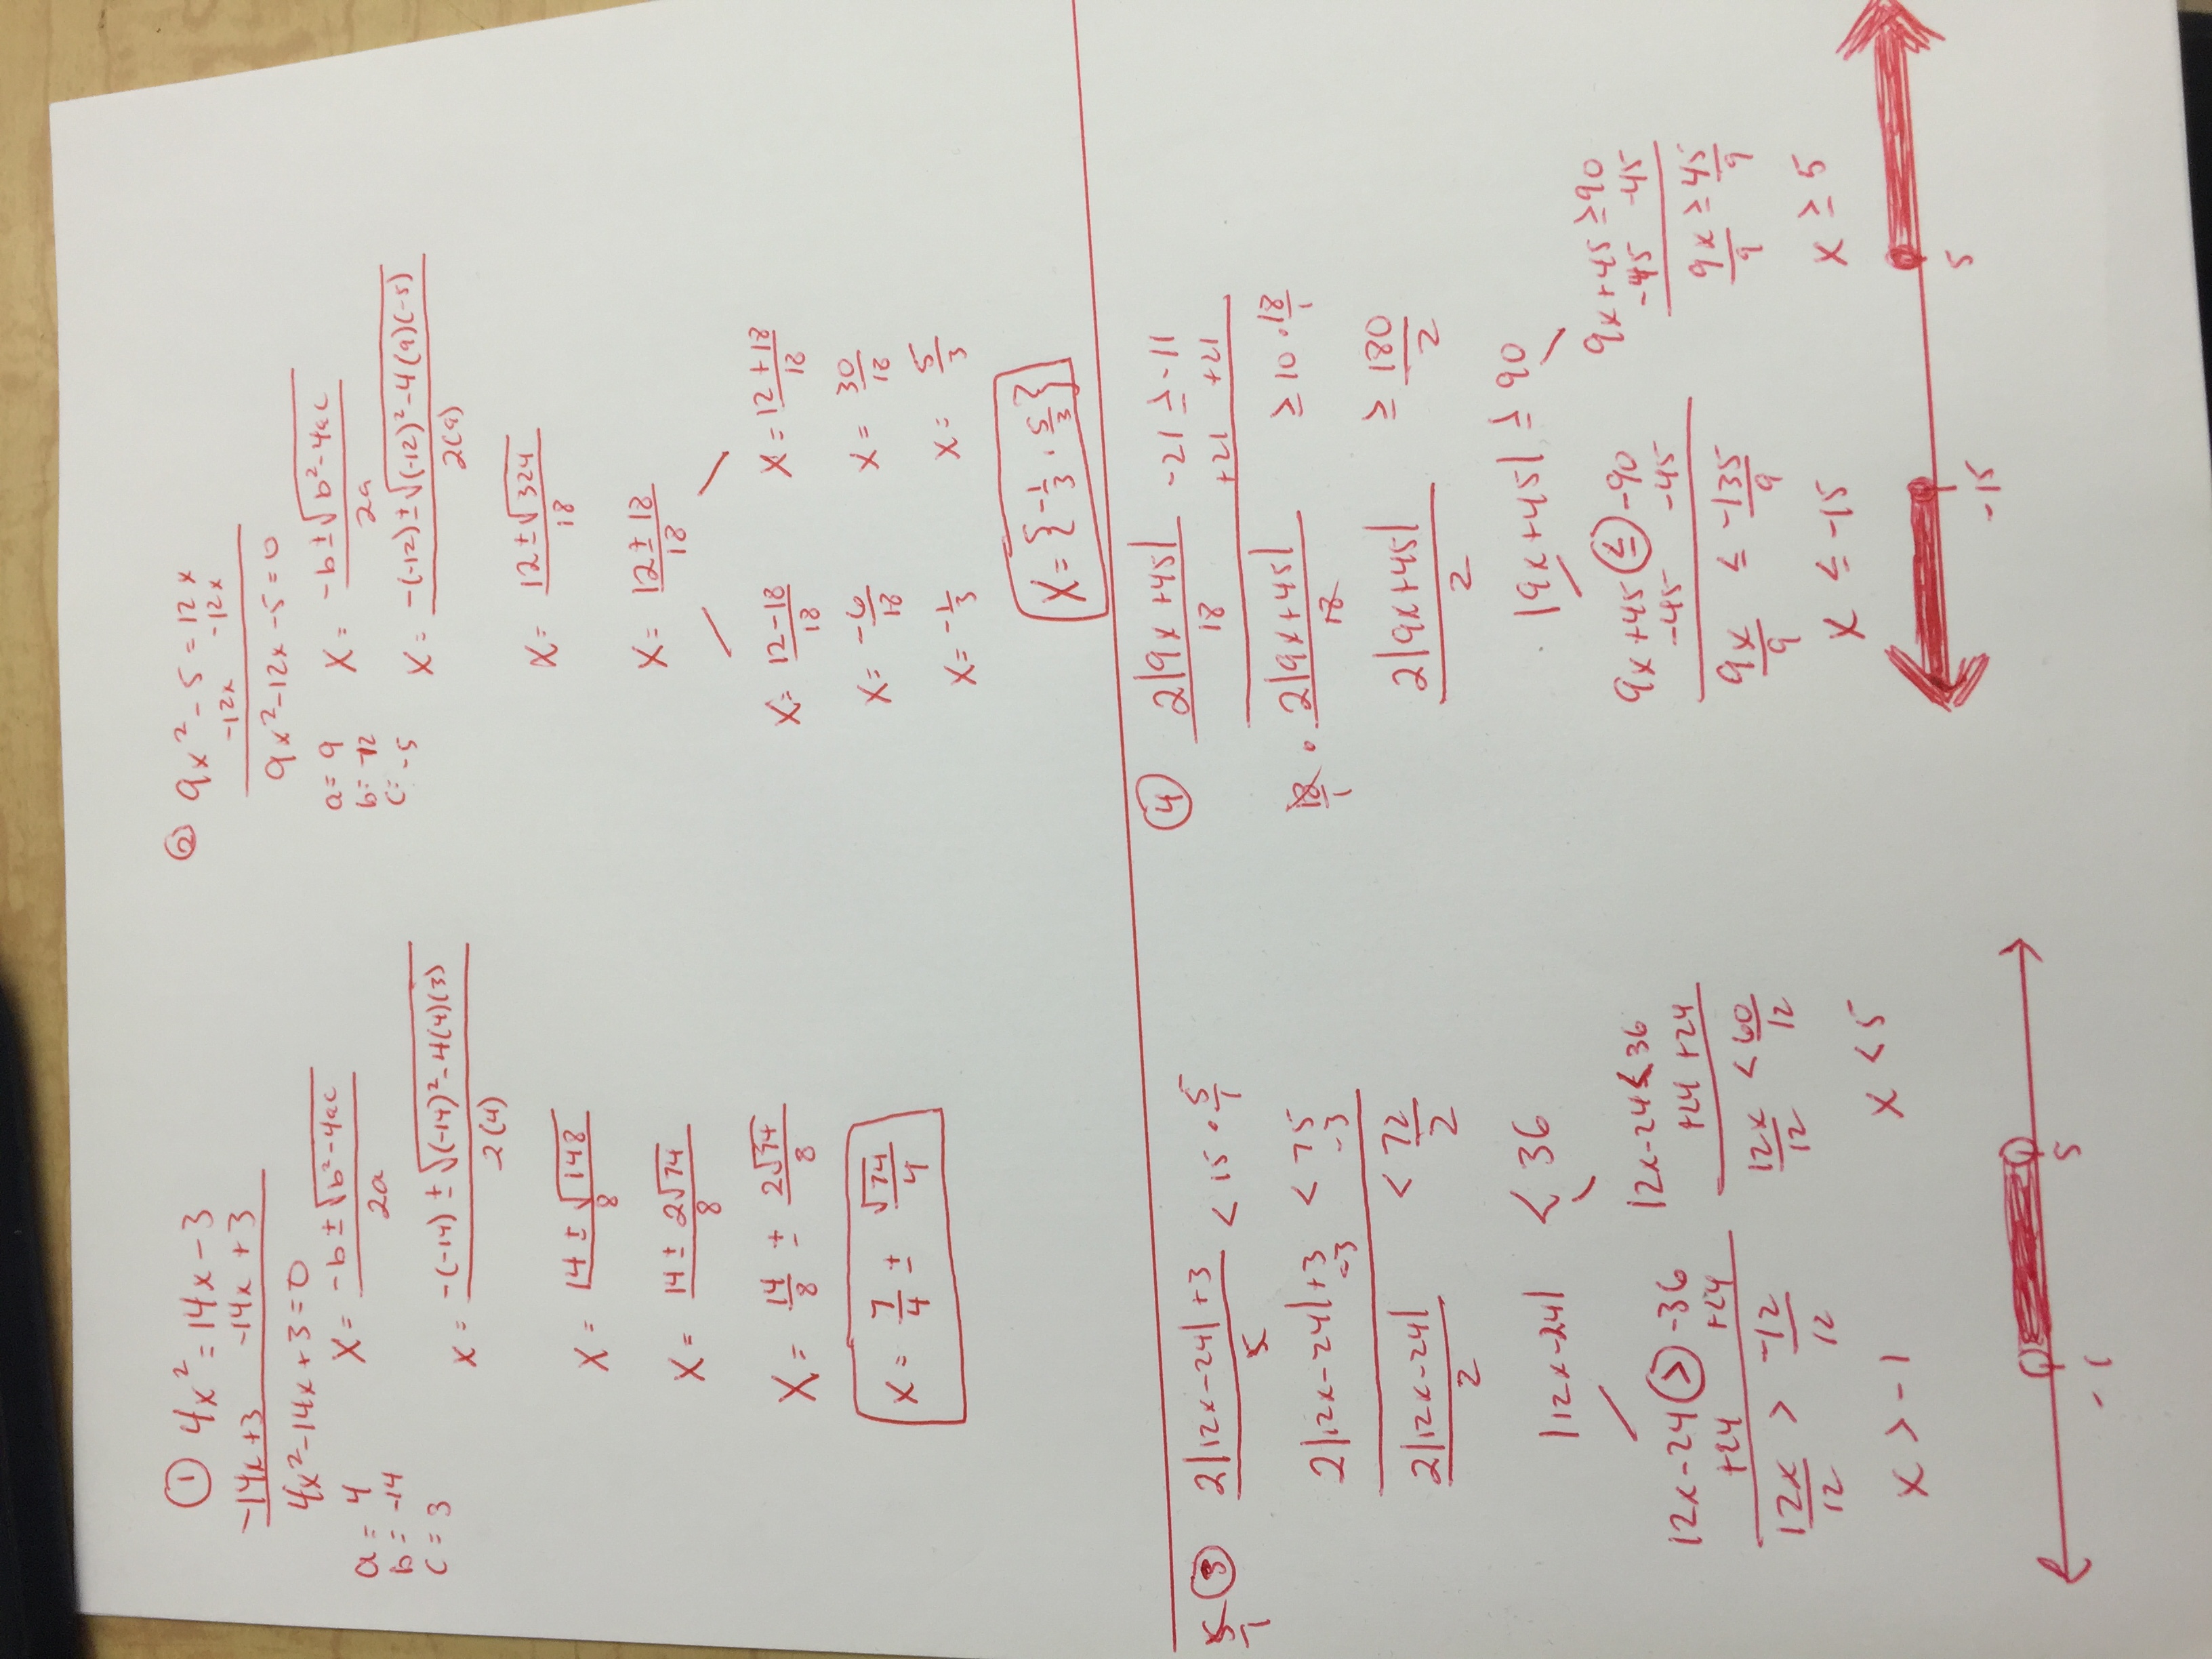 ① 4x² = 14x - 3
-14x+3 -14x +3
4x²-14x+3=0
a = 4
b = -14
c = 3
x = (-b±√(b²-4ac))/2a
x = (-(-14) ± √((-14)²-4(4)(3)))/2(4)
x = (14 ± √148)/8
x = (14 ± 2√74)/8
x = 14/8 ± 2√74/8
x = 7/4 ± √74/4
② 9x² - 5 = 12x
-12x -12x
9x²-12x-5=0
a = 9
b = -12
c = -5
x = (-b±√(b²-4ac))/2a
x = (-(-12)±√((-12)²-4(9)(-5)))/2(9)
x = (12±√324)/18
x = (12±18)/18
x = (12-18)/18 x = (12+18)/18
x = -6/18 x = 30/18
x = -1/3 x = 5/3
x = {-1/3, 5/3}
5/1 ③ (2|12x-24|+3)/5 < 15 · 5/1
2|12x-24|+3 < 75
-3 -3
2|12x-24|/2 < 72/2
|12x-24| < 36
12x-24 > -36 12x-24 < 36
+24 +24 +24 +24
12x/12 > -12/12 12x/12 < 60/12
x > -1 x < 5
-1 5
④ 2|9x+45|/18 -21 ≥ -11
+21 +21
18/1 · 2|9x+45|/18 ≥ 10 · 18/1
2|9x+45|/2 ≥ 180/2
|9x+45| ≥ 90
9x+45 ≤ -90 9x+45 ≥ 90
-45 -45 -45 -45
9x/9 ≤ -135/9 9x/9 ≥ 45/9
x ≤ -15 x ≥ 5
-15 5